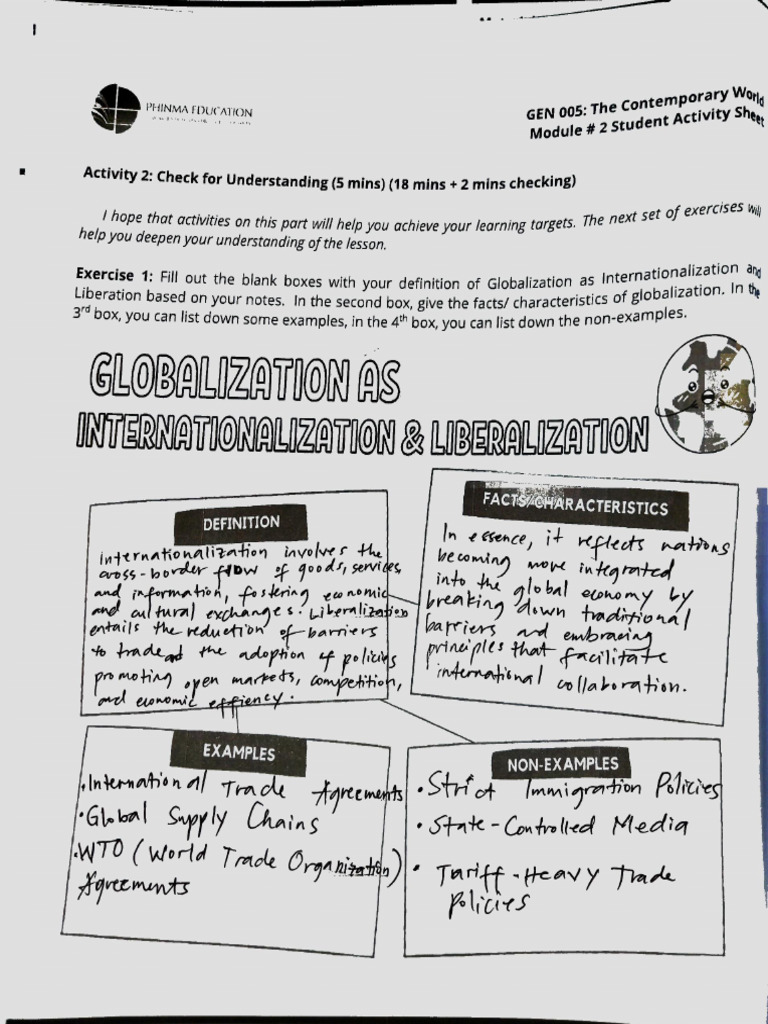 PHINMA EDUCATION
GEN 005: The Contemporary World
Module # 2 Student Activity Sheet
Activity 2: Check for Understanding (5 mins) (18 mins + 2 mins checking)
I hope that activities on this part will help you achieve your learning targets. The next set of exercises will
help you deepen your understanding of the lesson.
Exercise 1: Fill out the blank boxes with your definition of Globalization as Internationalization and
Liberation based on your notes. In the second box, give the facts/ characteristics of globalization. In the
3rd box, you can list down some examples, in the 4th box, you can list down the non-examples.
GLOBALIZATION AS
INTERNATIONALIZATION & LIBERALIZATION
DEFINITION
internationalization involves the
cross-border flow of goods, services,
and information, fostering economic
and cultural exchanges. Liberalization
entails the reduction of barriers
to trade the adoption of policies
promoting open markets, competition,
and economic effiency.
FACTS/CHARACTERISTICS
In essence, it reflects nations
becoming more integrated
into the global economy by
breaking down traditional
barriers and embracing
principles that facilitate
international collaboration.
EXAMPLES
• International Trade Agreements
• Global Supply Chains
• WTO (World Trade Organization)
Agreements
NON-EXAMPLES
• Strict Immigration Policies
• State-Controlled Media
• Tariff-Heavy Trade
Policies